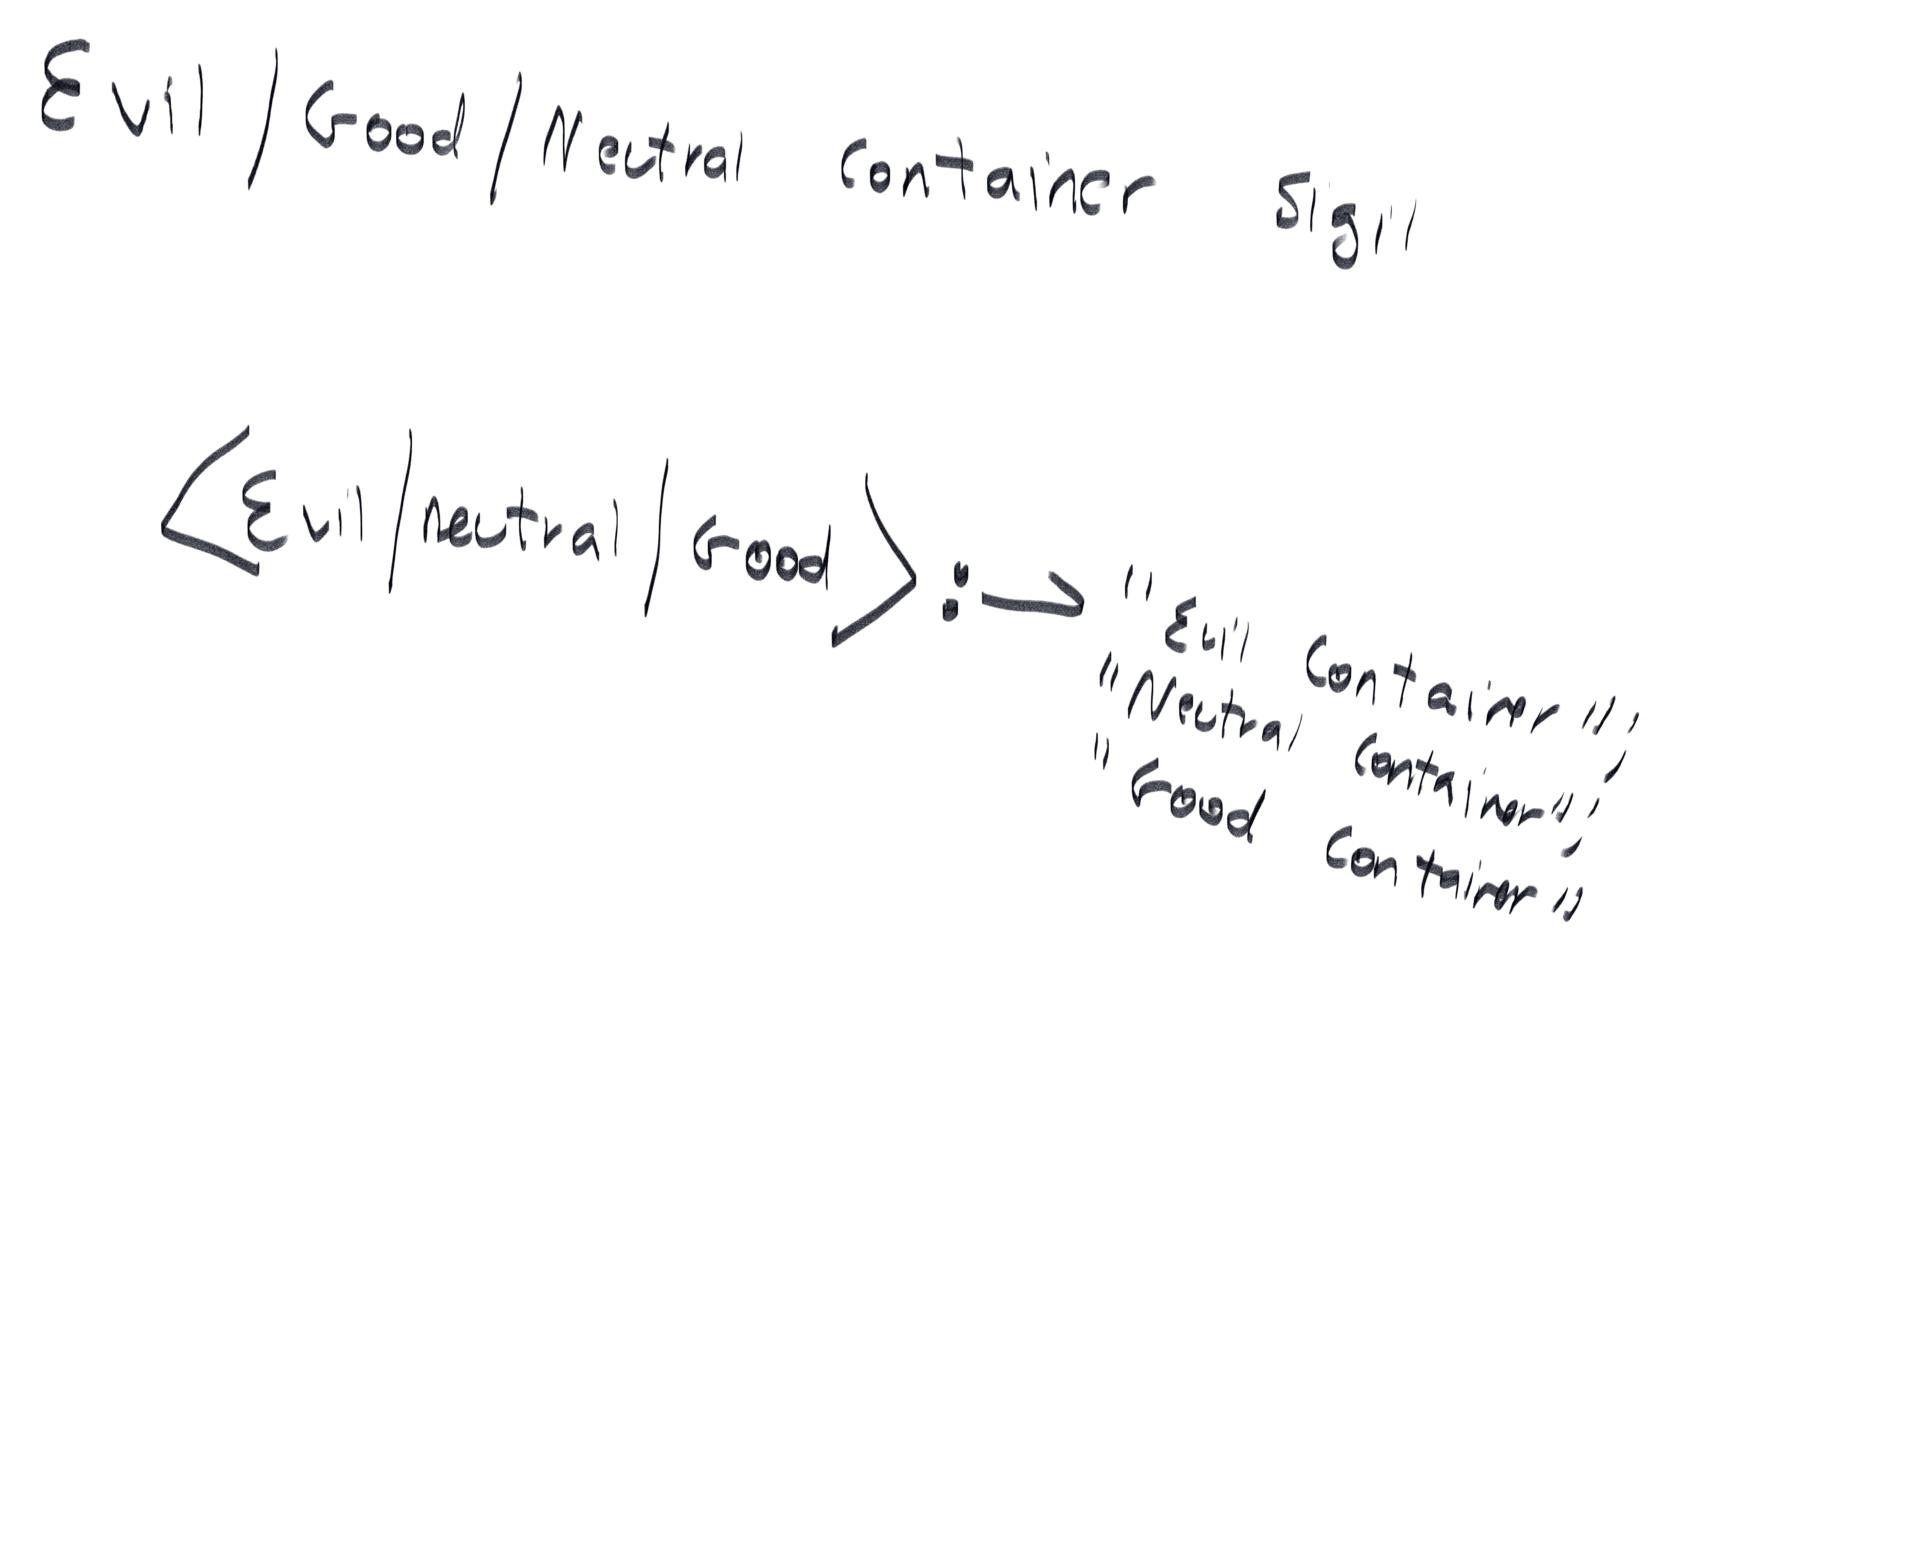 Evil/Good/Neutral Container Sigil
<Evil/neutral/Good>:→"Evil Container";
"Neutral Container";
"Good Container"